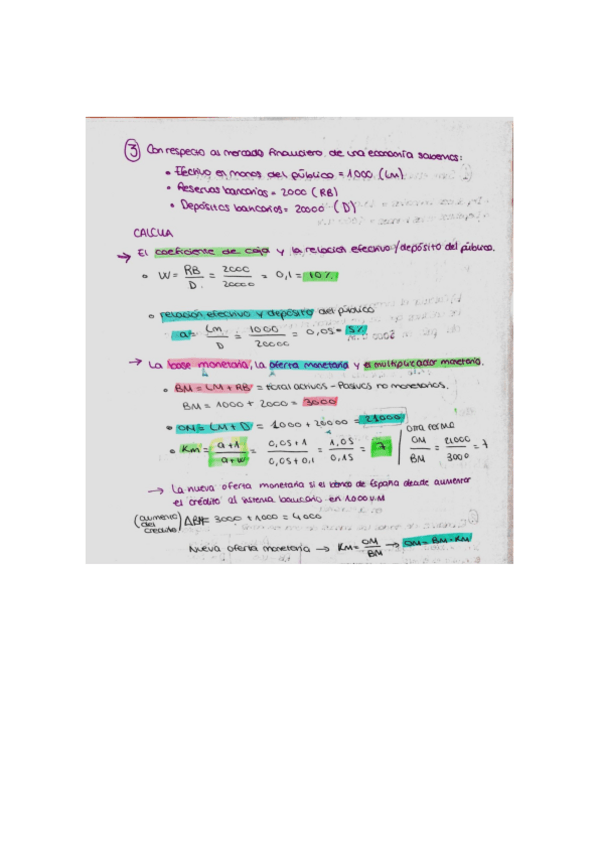 ③ Con respecto al mercado financiero de una economía sabemos:
• Efectivo en manos del público = 1000 (Lm)
• Reservas bancarias = 2000 (RB)
• Depósitos bancarios = 20000 (D)
CALCULA
→ El coeficiente de caja y la relación efectivo/depósito del público.
• W = RB/D = 2000/20000 = 0,1 = 10%
• relación efectivo y depósito del público
a = Lm/D = 1000/20000 = 0,05 = 5%
→ La base monetaria, la oferta monetaria y el multiplicador monetario.
• BM = LM + RB = total activos - Pasivos no monetarios.
BM = 1000 + 2000 = 3000
• OM = LM + D = 1000 + 20000 = 21000
• Km = a+1/a+w = 0,05+1/0,05+0,1 = 1,05/0,15 = 7
otra forma
OM/BM = 21000/3000 = 7
→ La nueva oferta monetaria si el banco de España decide aumentar
el crédito al sistema bancario en 1000 u.m
(aumento del crédito) ΔBM = 3000 + 1000 = 4000
Nueva oferta monetaria → KM = OM/BM → OM = BM · KM